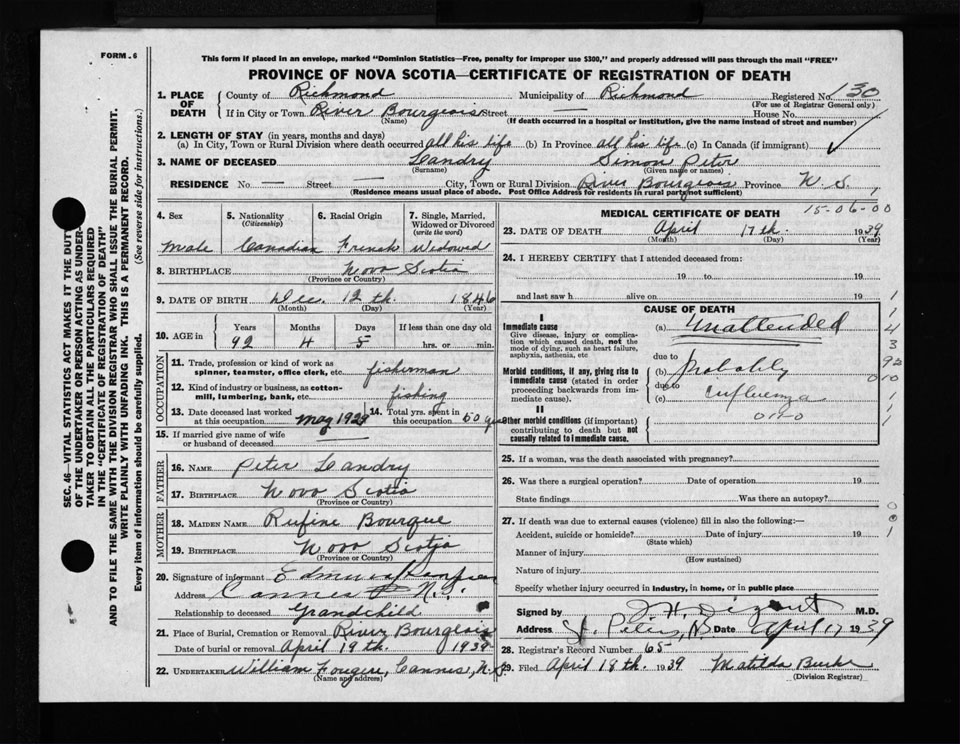 FORM - 6
This form if placed in an envelope, marked "Dominion Statistics—Free, penalty for improper use $300," and properly addressed will pass through the mail "FREE"
PROVINCE OF NOVA SCOTIA—CERTIFICATE OF REGISTRATION OF DEATH
1. PLACE OF DEATH County of Richmond Municipality of Richmond Registered No. 130
(For use of Registrar General only)
If in City or Town River Bourgeois Street — House No.
(Name) (If death occurred in a hospital or institution, give the name instead of street and number)
2. LENGTH OF STAY (in years, months and days)
(a) In City, Town or Rural Division where death occurred all his life (b) In Province all his life (c) In Canada (if immigrant)
3. NAME OF DECEASED Landry Simon Peter
(Surname) (Given name or names)
RESIDENCE No. — Street — City, Town or Rural Division River Bourgeois Province N. S.
(Residence means usual place of abode. Post Office Address for residents in rural parts not sufficient)
4. Sex 5. Nationality (Citizenship) 6. Racial Origin 7. Single, Married, Widowed or Divorced (write the word)
Male Canadian French Widowed
8. BIRTHPLACE Nova Scotia
(Province or Country)
9. DATE OF BIRTH Dec. 12 th. 1846
(Month) (Day) (Year)
10. AGE in Years Months Days If less than one day old
92 4 5 hrs. or min.
OCCUPATION
11. Trade, profession or kind of work as spinner, teamster, office clerk, etc. fisherman
12. Kind of industry or business, as cotton-mill, lumbering, bank, etc. fishing
13. Date deceased last worked at this occupation May 192 14. Total yrs. spent in this occupation 50
15. If married give name of wife or husband of deceased —
FATHER
16. NAME Peter Landry
17. BIRTHPLACE Nova Scotia
(Province or Country)
MOTHER
18. MAIDEN NAME Rufine Bourque
19. BIRTHPLACE Nova Scotia
(Province or Country)
20. Signature of informant
Address Cannes N.S.
Relationship to deceased Grandchild
21. Place of Burial, Cremation or Removal River Bourgeois
Date of burial or removal April 19 th. 1939
22. UNDERTAKER William Fougere, Cannes, N.S.
(Name and address)
MEDICAL CERTIFICATE OF DEATH
15-06-00
23. DATE OF DEATH April 17 th. 1939
(Month) (Day) (Year)
24. I HEREBY CERTIFY that I attended deceased from:
19 to 19
and last saw h alive on 19
CAUSE OF DEATH
I
Immediate cause (a) Unattended
Give disease, injury or complication which caused death, not the mode of dying, such as heart failure, asphyxia, asthenia, etc
due to
Morbid conditions, if any, giving rise to immediate cause (stated in order proceeding backwards from immediate cause).
(b) Probably
due to
(c) influenza
II
Other morbid conditions (if important) contributing to death but not causally related to immediate cause.
25. If a woman, was the death associated with pregnancy?
26. Was there a surgical operation? Date of operation 19
State findings Was there an autopsy?
27. If death was due to external causes (violence) fill in also the following:—
Accident, suicide or homicide? Date of injury 19
(State which)
Manner of injury
(How sustained)
Nature of injury
Specify whether injury occurred in Industry, in home, or in public place
Signed by M.D.
Address St. Peters, NS Date April 17 1939
28. Registrar's Record Number 65
29. Filed April 18 th. 1939 Matilda Burke
(Division Registrar)
1
1
4
3
92
010
1
1
1
0
1
SEC. 46—VITAL STATISTICS ACT MAKES IT THE DUTY
OF THE UNDERTAKER OR PERSON ACTING AS UNDER-
TAKER TO OBTAIN ALL THE PARTICULARS REQUIRED
IN THE "CERTIFICATE OF REGISTRATION OF DEATH"
AND TO FILE THE SAME WITH THE DIVISION REGISTRAR WHO SHALL ISSUE THE BURIAL PERMIT.
WRITE PLAINLY WITH UNFADING INK. THIS IS A PERMANENT RECORD.
Every item of information should be carefully supplied. (See reverse side for instructions.)